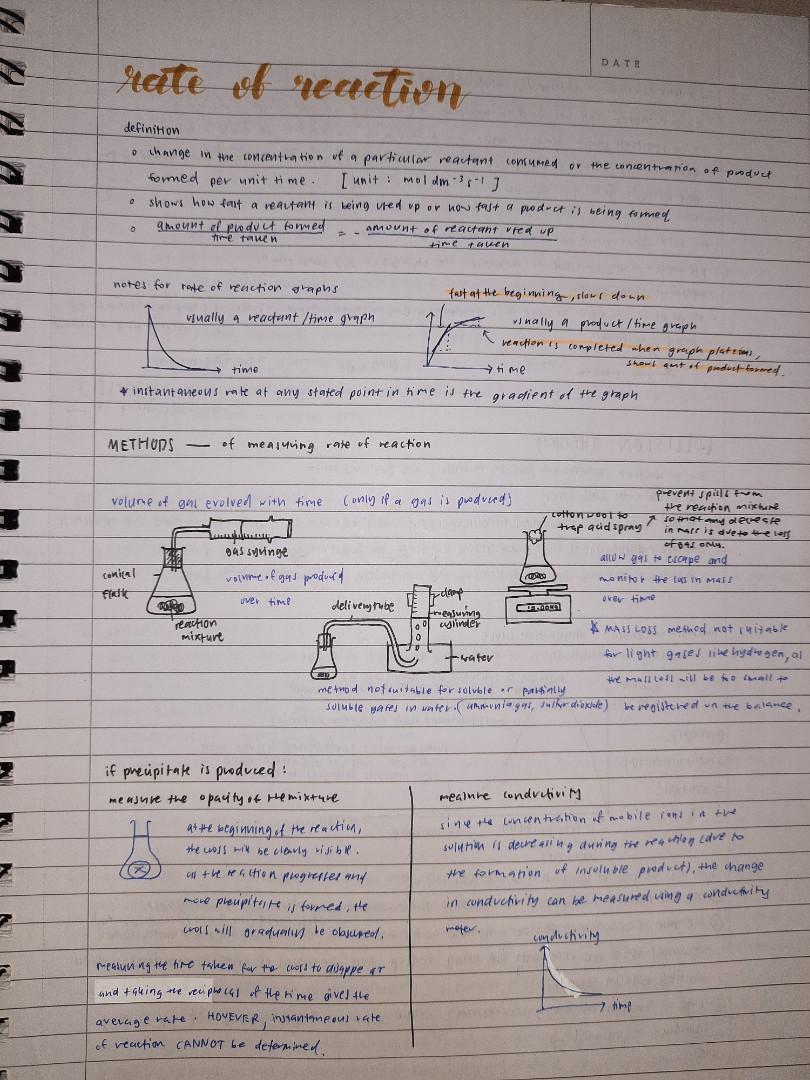 DATE
rate of reaction
definition
o change in the concentration of a particular reactant consumed or the concentration of product
formed per unit time. [unit : mol dm⁻³ s⁻¹ ]
o shows how fast a reactant is being used up or how fast a product is being formed
o amount of product formed / time taken = - amount of reactant used up / time taken
notes for rate of reaction graphs
fast at the beginning, slows down
usually a reactant / time graph
usually a product / time graph
reaction is completed when graph plateaus,
shows amt of product formed.
time
time
* instantaneous rate at any stated point in time is the gradient of the graph
METHODS — of measuring rate of reaction
volume of gas evolved with time (only if a gas is produced)
gas syringe
conical
flask
volume of gas produced
over time
reaction
mixture
delivery tube
clamp
measuring
cylinder
water
method not suitable for soluble or partially
soluble gases in water. (ammonia gas, sulfur dioxide)
cotton wool to
trap acid spray
prevent spills from
the reaction mixture
so that any decrease
in mass is due to the loss
of gas only.
allow gas to escape and
monitor the loss in mass
over time
* MASS LOSS method not suitable
for light gases like hydrogen, as
the mass loss will be too small to
be registered on the balance.
if precipitate is produced :
measure the opacity of the mixture
at the beginning of the reaction,
the cross will be clearly visible.
as the reaction progresses and
more precipitate is formed, the
cross will gradually be obscured.
measuring the time taken for the cross to disappear
and taking the reciprocal of the time gives the
average rate. HOWEVER, instantaneous rate
of reaction CANNOT be determined.
measure conductivity
since the concentration of mobile ions in the
solution is decreasing during the reaction (due to
the formation of insoluble product), the change
in conductivity can be measured using a conductivity
meter.
conductivity
time